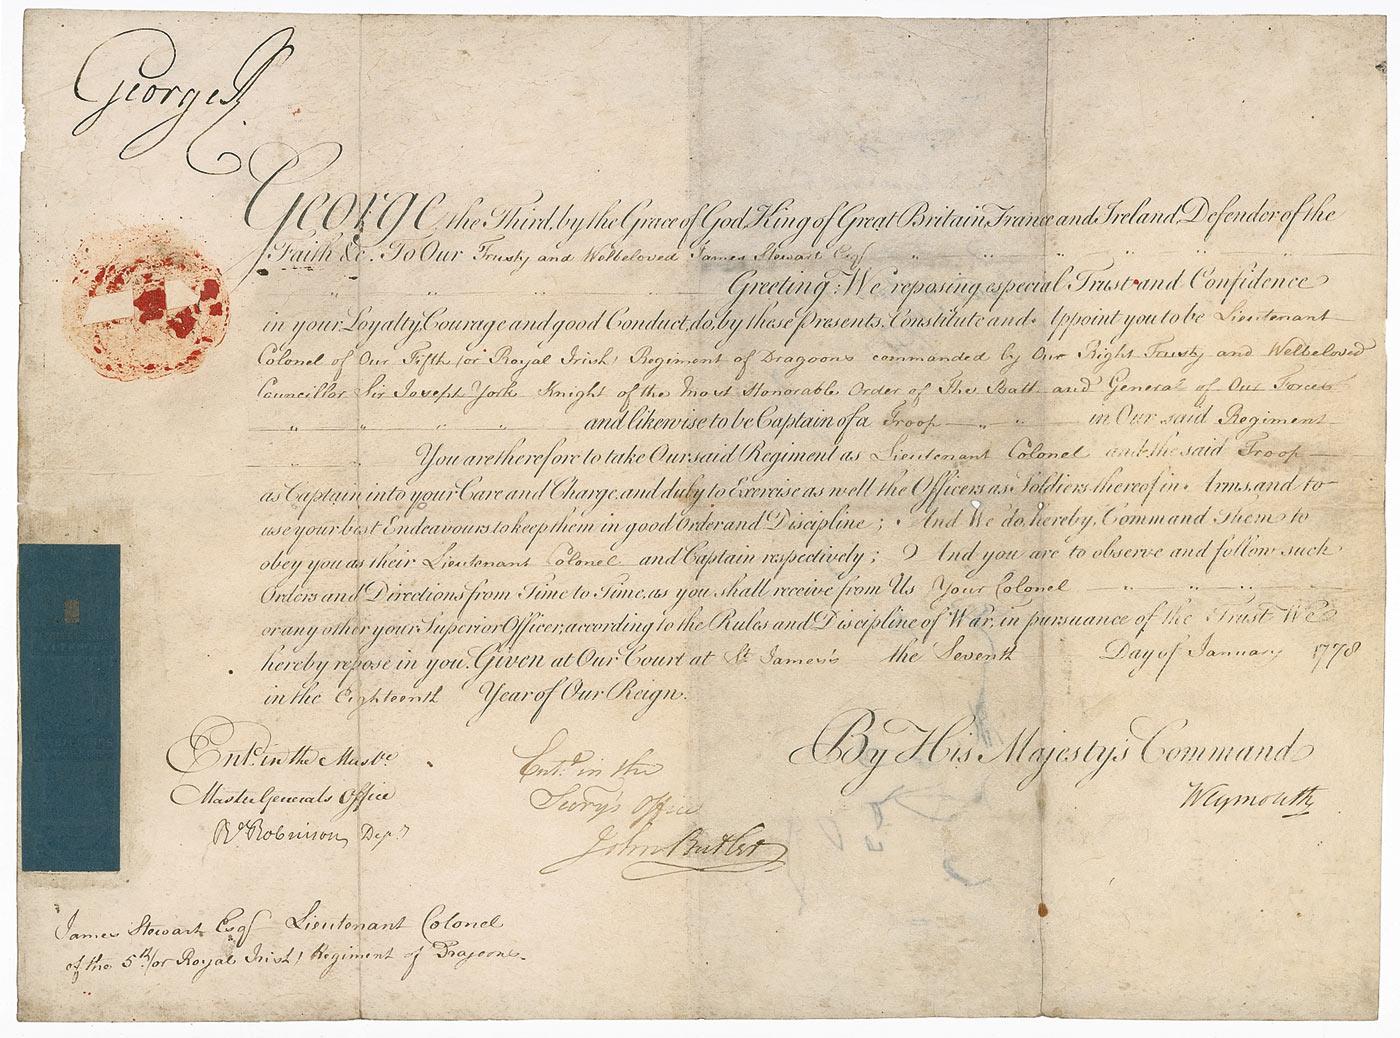 George R
George the Third, by the Grace of God, King of Great Britain, France and Ireland, Defender of the
Faith &c. To Our Trusty and Welbeloved James Stewart Esqr
Greeting: We reposing especial Trust and Confidence
in your Loyalty, Courage and good Conduct, do, by these Presents, Constitute and Appoint you to be Lieutenant
Colonel of Our Fifth (or Royal Irish) Regiment of Dragoons commanded by Our Right Trusty and Welbeloved
Councillor Sir Joseph York Knight of the Most Honorable Order of The Bath and General of Our Forces
and likewise to be Captain of a Troop in Our said Regiment
You are therefore to take Our said Regiment as Lieutenant Colonel and the said Troop
as Captain into your Care and Charge, and duly to Exercise as well the Officers as Soldiers thereof in Arms, and to
use your best Endeavours to keep them in good Order and Discipline; And We do, hereby, Command them to
obey you as their Lieutenant Colonel and Captain respectively; And you are to observe and follow such
Orders and Directions from Time to Time, as you shall receive from Us Your Colonel
or any other your Superior Officer, according to the Rules and Discipline of War, in pursuance of the Trust We
hereby repose in you. Given at Our Court at St. James's the Seventh Day of January 1778
in the Eighteenth Year of Our Reign.
By His Majesty's Command
Weymouth
Entd. in the Muster
Master Generals Office
Rd Robinson Depy
Entd. in the
Secry's Office
John Butler
James Stewart Esqr Lieutenant Colonel
of the 5th (or Royal Irish) Regiment of Dragoons.